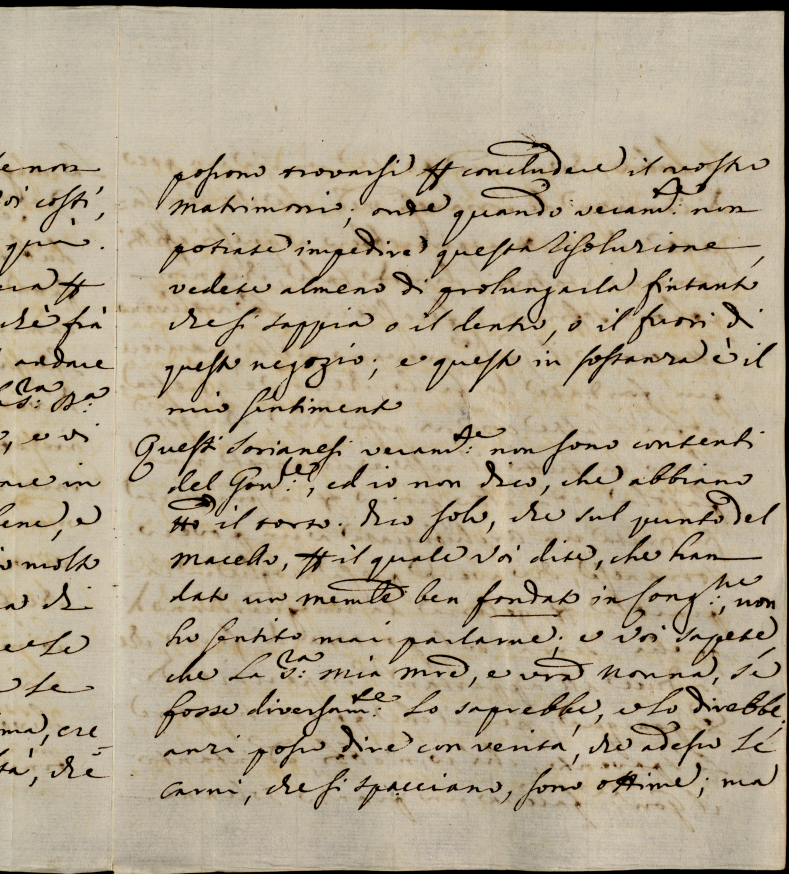 le non
Voi costì,
quà.
ma p
che frà
andare
S:ra Sa:
, e vi
me in
bene, e
o molto
a di
e se
e se
ima, cre
tà, che
possono trovarsi p concludere il vostro
matrimonio; onde quando veramte: non
potiate impedire questa risoluzione,
vedete almeno di prolungarla fintanto
che si sappia o il dentro, o il fuori di
questo negozio; e questo in sostanza è il
mio sentimento
Questi Sorianesi veramte: non sono contenti
del Govre:, ed io non dico, che abbiano
tto il torto. Dico solo, che sul punto del
macello, p il quale Voi dite, che han
dato un memle ben fondato in Congne:, non
ho sentito mai parlarne; e Voi sapete,
che La S:ra mia mre, e vra Nonna, se
fosse diversamte: Lo saprebbe, e lo direbbe,
anzi posso dire con verità, che adesso Le
carni, che si spacciano, sono ottime; ma